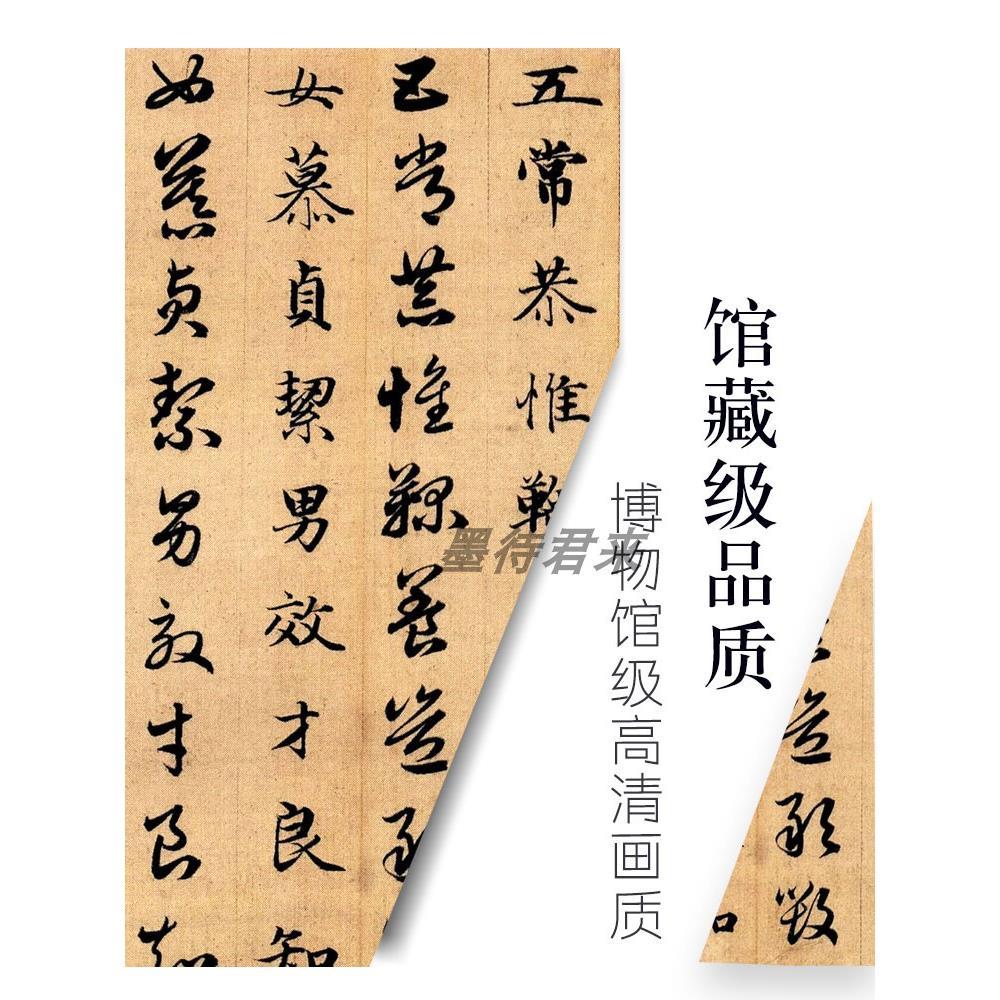 五常恭惟
五常恭惟鞠養豈
女慕貞絜男效才良知
女慕貞絜男效才良知
馆藏级品质
博物馆级高清画质
墨待君来
豈敢毀